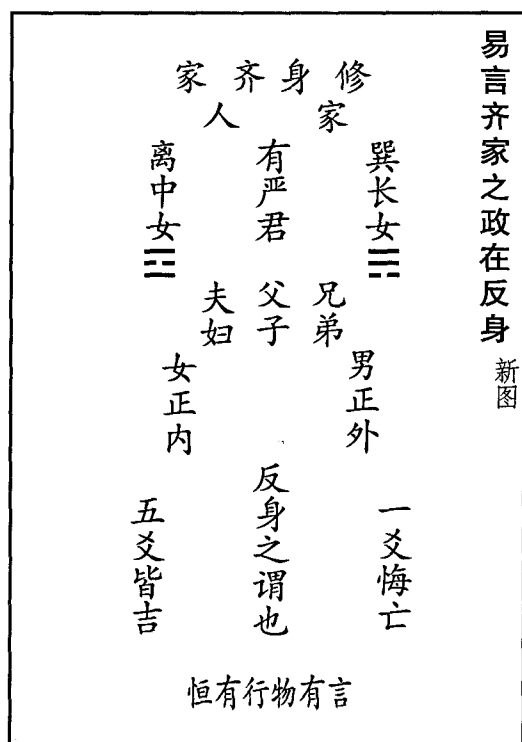 易言齐家之政在反身
新图
修身齐家
家人
巽长女☴
有严君
离中女☲
兄弟
父子
夫妇
男正外
女正内
一爻悔亡
反身之谓也
五爻皆吉
言有物行有恒